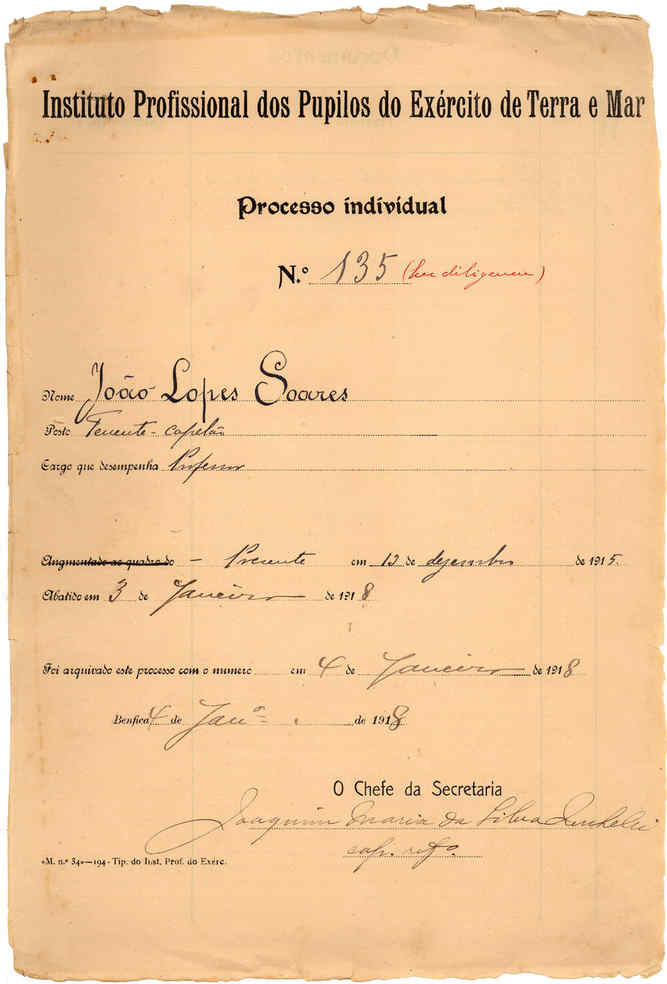 Instituto Profissional dos Pupilos do Exército de Terra e Mar
Processo individual
N.º 135 (Em diligencia)
Nome João Lopes Soares
Posto Tenente-capelão
Cargo que desempenha Professor
Augmentado ao quadro do - Presente em 13 de dezembro de 1915.
Abatido em 3 de Janeiro de 1918
Foi arquivado este processo com o numero em 4 de Janeiro de 1918
Benfica 4 de Janº de 1918
O Chefe da Secretaria
Joaquim Maria da Silva
cap. refº.
«M. n.º 34»—194- Tip. do Inst. Prof. do Exérc.